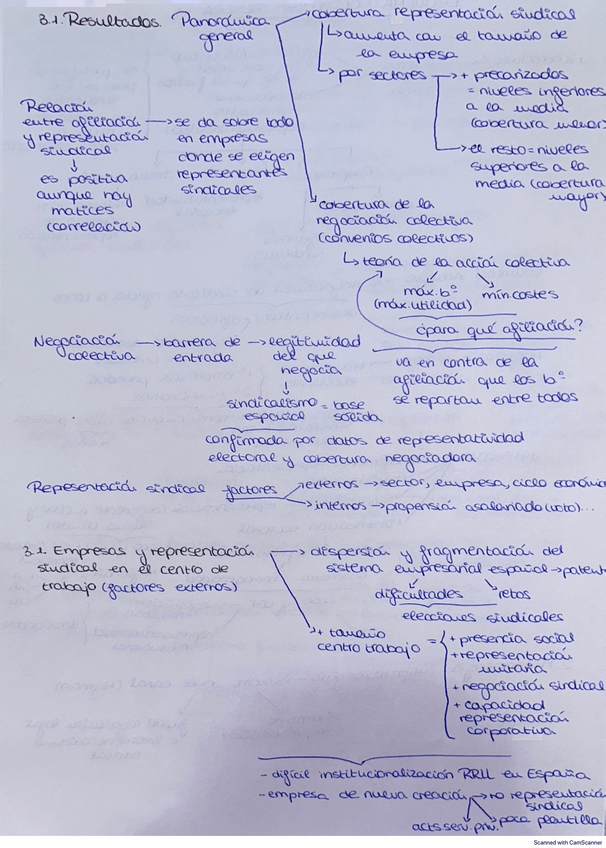 3.1. Resultados. Panorámica general
cobertura representación sindical
aumenta con el tamaño de
la empresa
por sectores → + precarizados
= niveles inferiores
a la media
(cobertura menor)
el resto = niveles
superiores a la
media (cobertura
mayor)
Relación
entre afiliación
y representación
sindical
↓
es positiva
aunque hay
matices
(correlación)
→ se da sobre todo
en empresas
donde se eligen
representantes
sindicales
cobertura de la
negociación colectiva
(convenios colectivos)
teoría de la acción colectiva
máx. bº
(máx. utilidad)
mín costes
¿para qué afiliación?
va en contra de la
afiliación que los bº
se reportan entre todos
Negociación
colectiva
→ barrera de
entrada
→ legitimidad
del que
negocia
↓
sindicalismo
español
= base
sólida
confirmada por datos de representatividad
electoral y cobertura negociadora
Representación sindical factores
externos → sector, empresa, ciclo económic
internos → propensión asalariado (voto)...
3.2. Empresas y representación
sindical en el centro de
trabajo (factores externos)
dispersión y fragmentación del
sistema empresarial español → patent
dificultades
retos
elecciones sindicales
+ tamaño
centro trabajo
=
+ presencia social
+ representación
unitaria
+ negociación sindical
+ capacidad
representación
corporativa
- difícil institucionalización RRLL en España
- empresa de nueva creación → no representación
sindical
poca plantilla
acts serv. priv.
Scanned with CamScanner